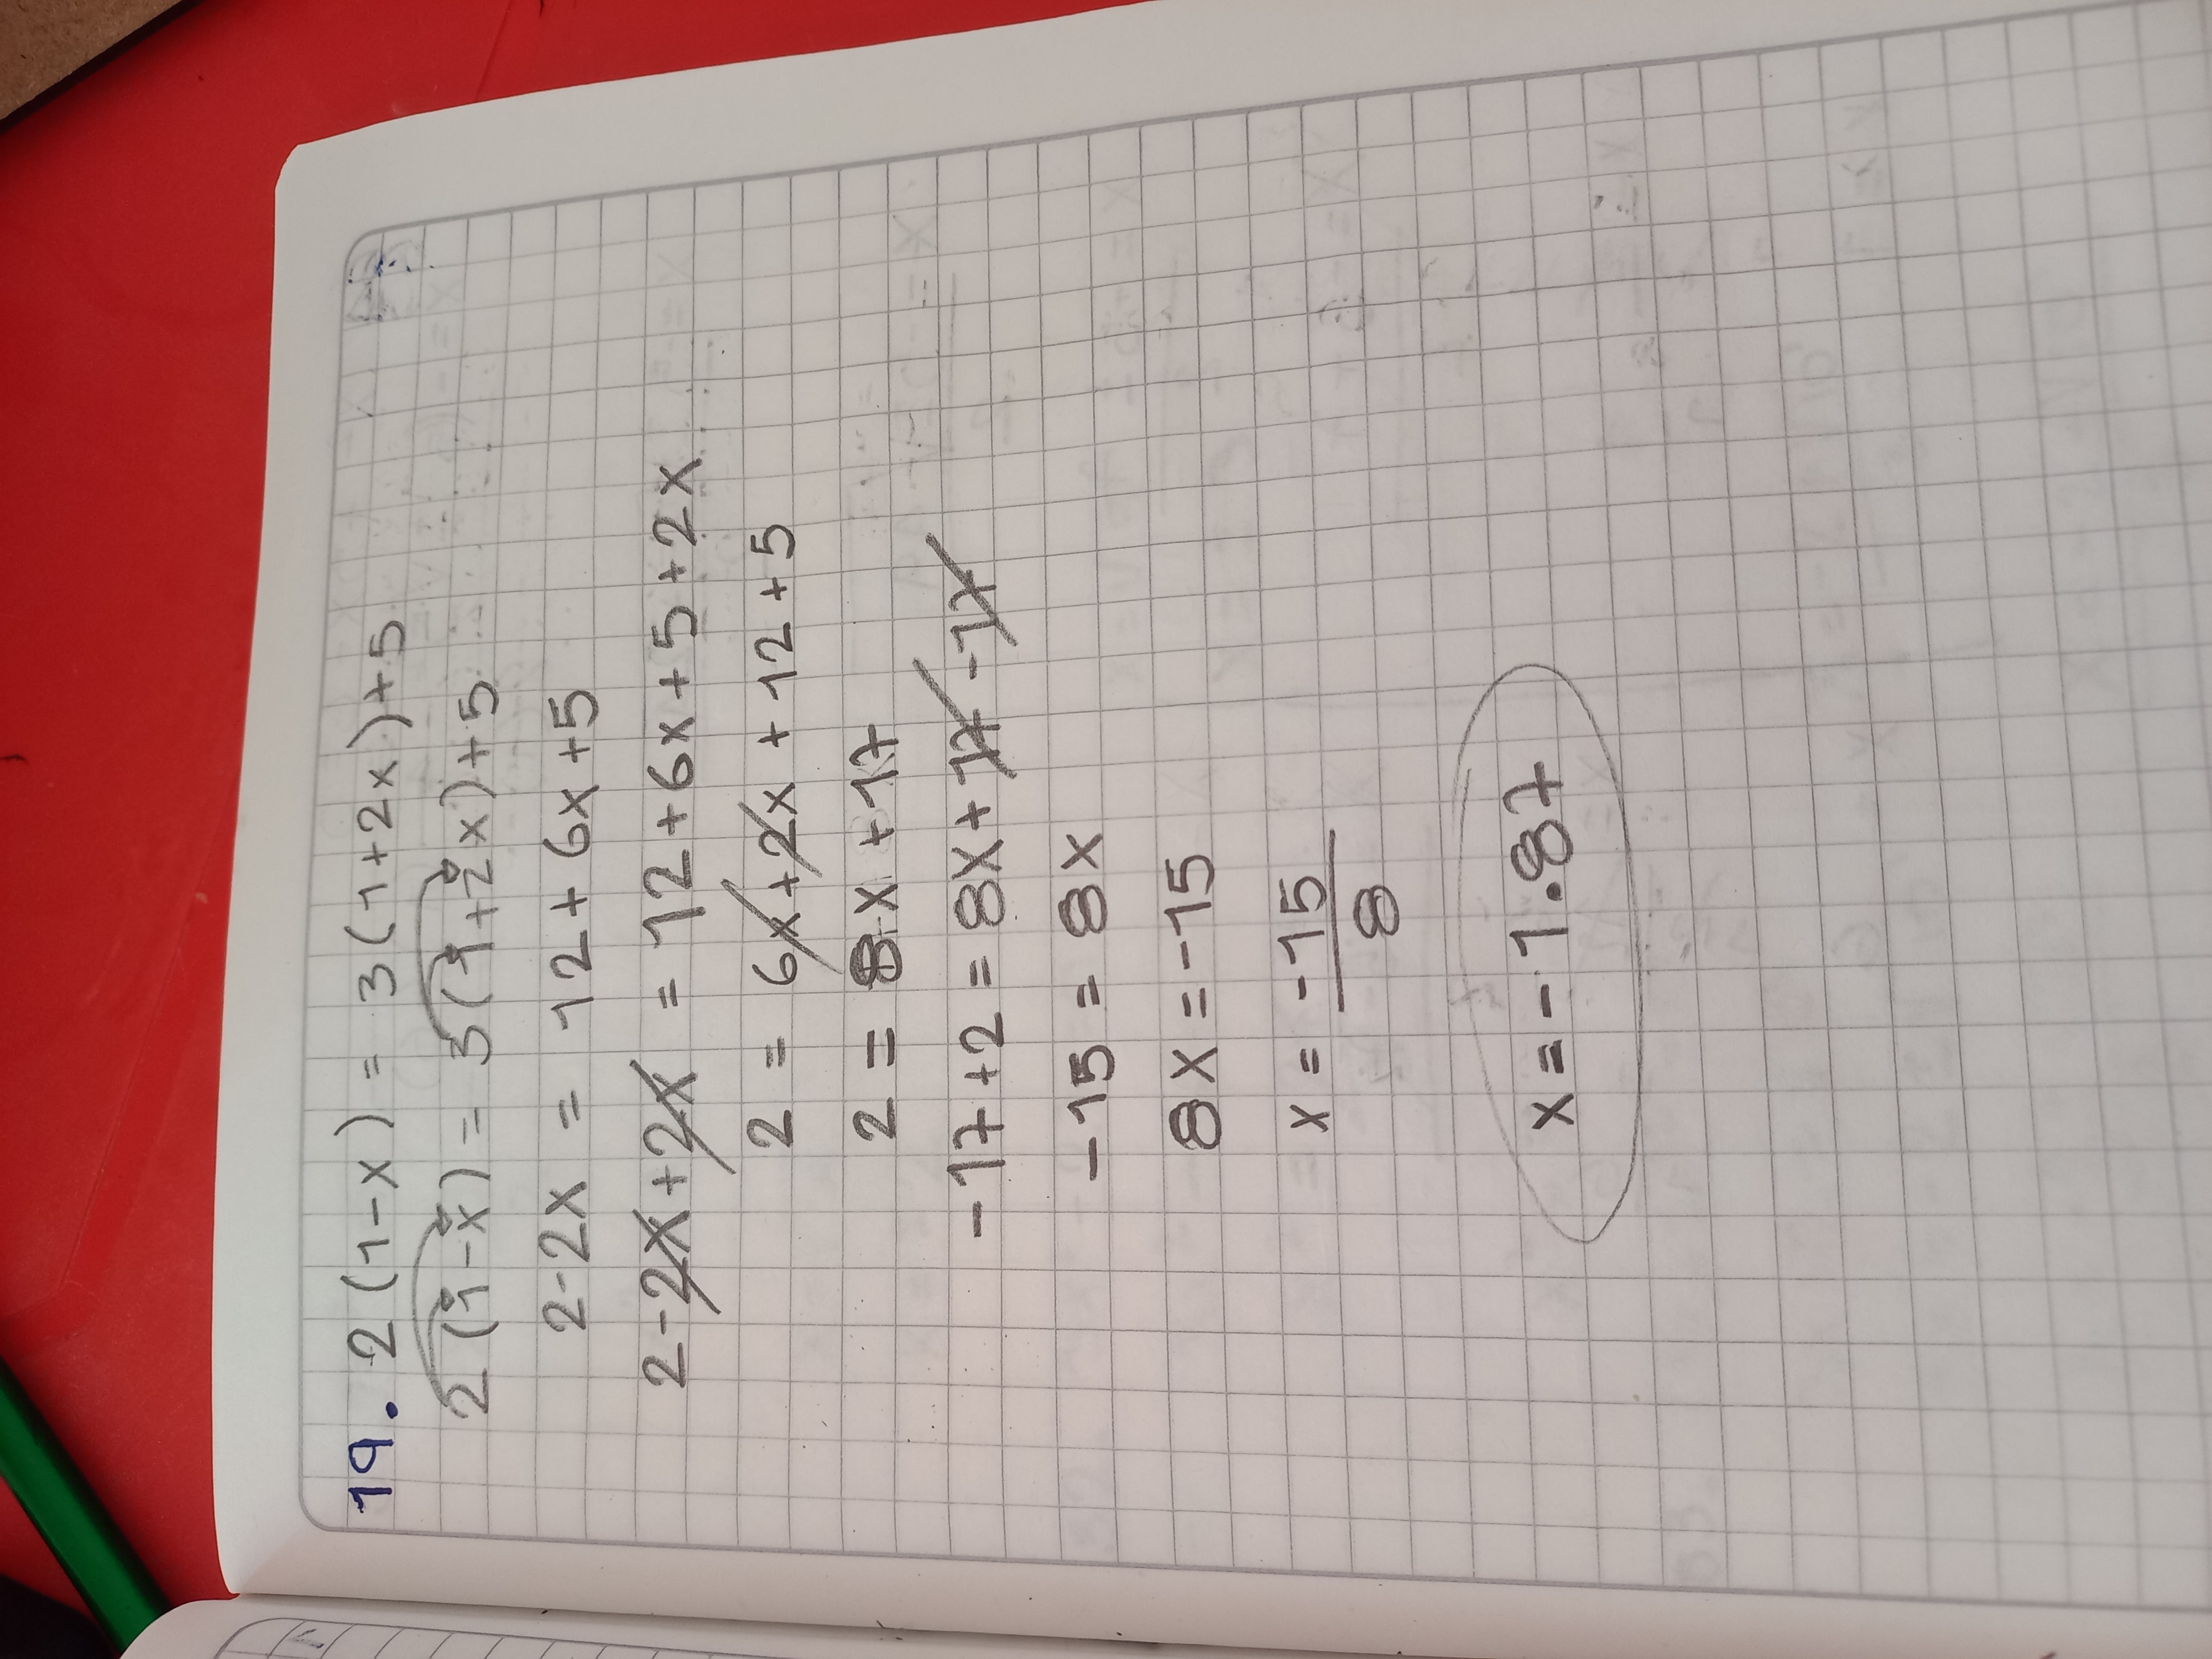 19. 2(1-x) = 3(1+2x)+5
2(1-x) = 3(1+2x)+5
2-2x = 12+6x+5
2-2x+2x = 12+6x+5+2x
2 = 6x+2x+12+5
2 = 8x+17
-17+2 = 8x+17-17
-15 = 8x
8x = -15
x = -15
8
x = -1.87